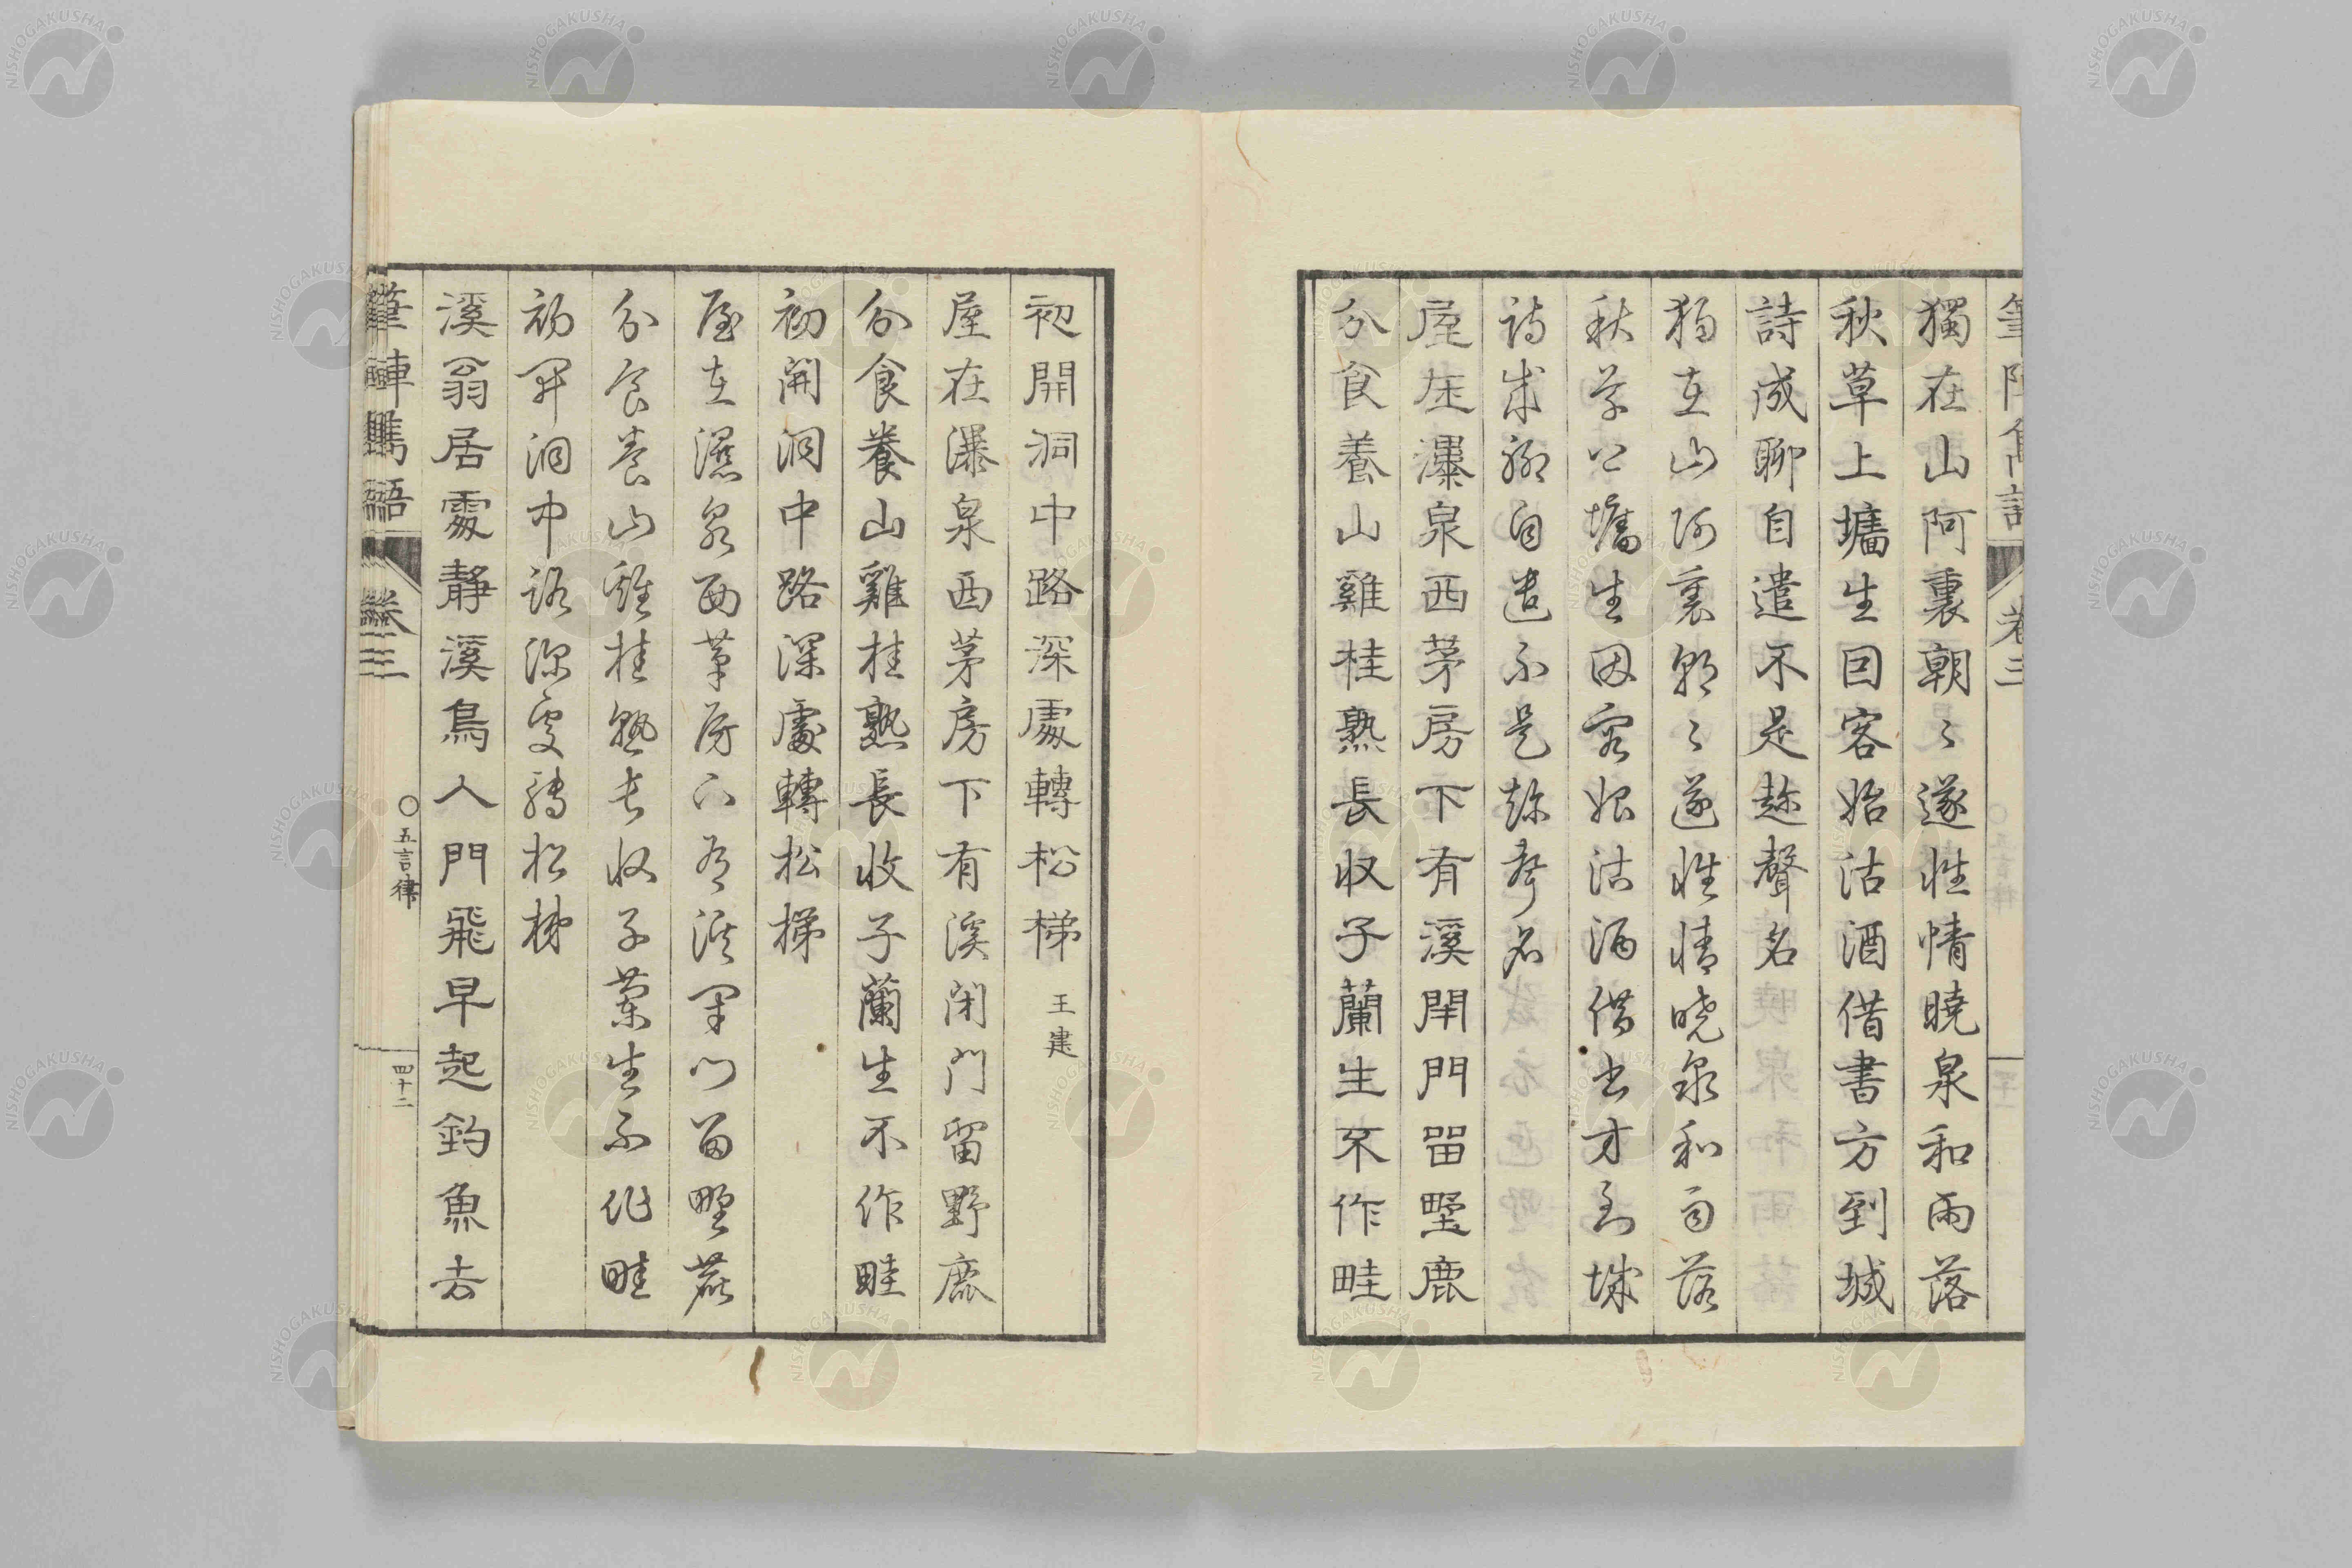 獨在山阿裏朝〻遂性情曉泉和雨落
秋草上墻生因客始沽酒借書方到城
詩成聊自遣不是趂聲名
獨在山阿裏朝〻遂性情曉泉和雨落
秋草上墻生因客始沽酒借書方到城
詩成聊自遣不是趂聲名
屋在瀑泉西茅房下有溪閉門留野鹿
分食養山雞桂熟長收子蘭生不作畦
初開洞中路深處轉松梯 王建
屋在瀑泉西茅房下有溪閉門留野鹿
分食養山雞桂熟長收子蘭生不作畦
初開洞中路深處轉松梯
屋在瀑泉西茅房下有溪閉門留野鹿
分食養山雞桂熟長收子蘭生不作畦
初開洞中路深處轉松梯
溪翁居處靜溪鳥入門飛早起釣魚去
筆陣雋語 卷三 〇五言律 四十二
NISHOGAKUSHA